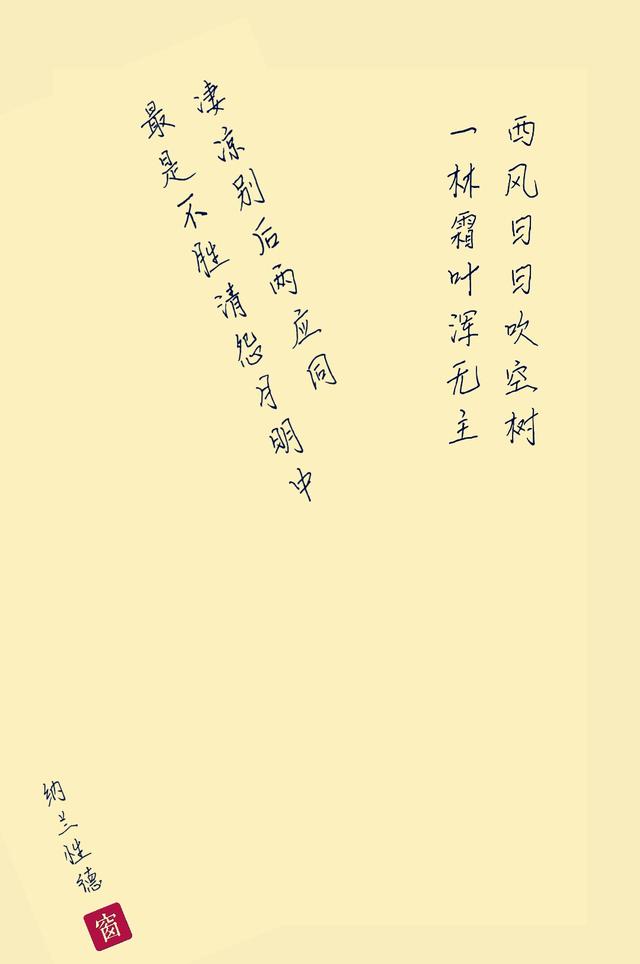 西风日日吹空树
一林霜叶浑无主
凄凉别后两应同
最是不胜清怨月明中
纳兰性德
窗